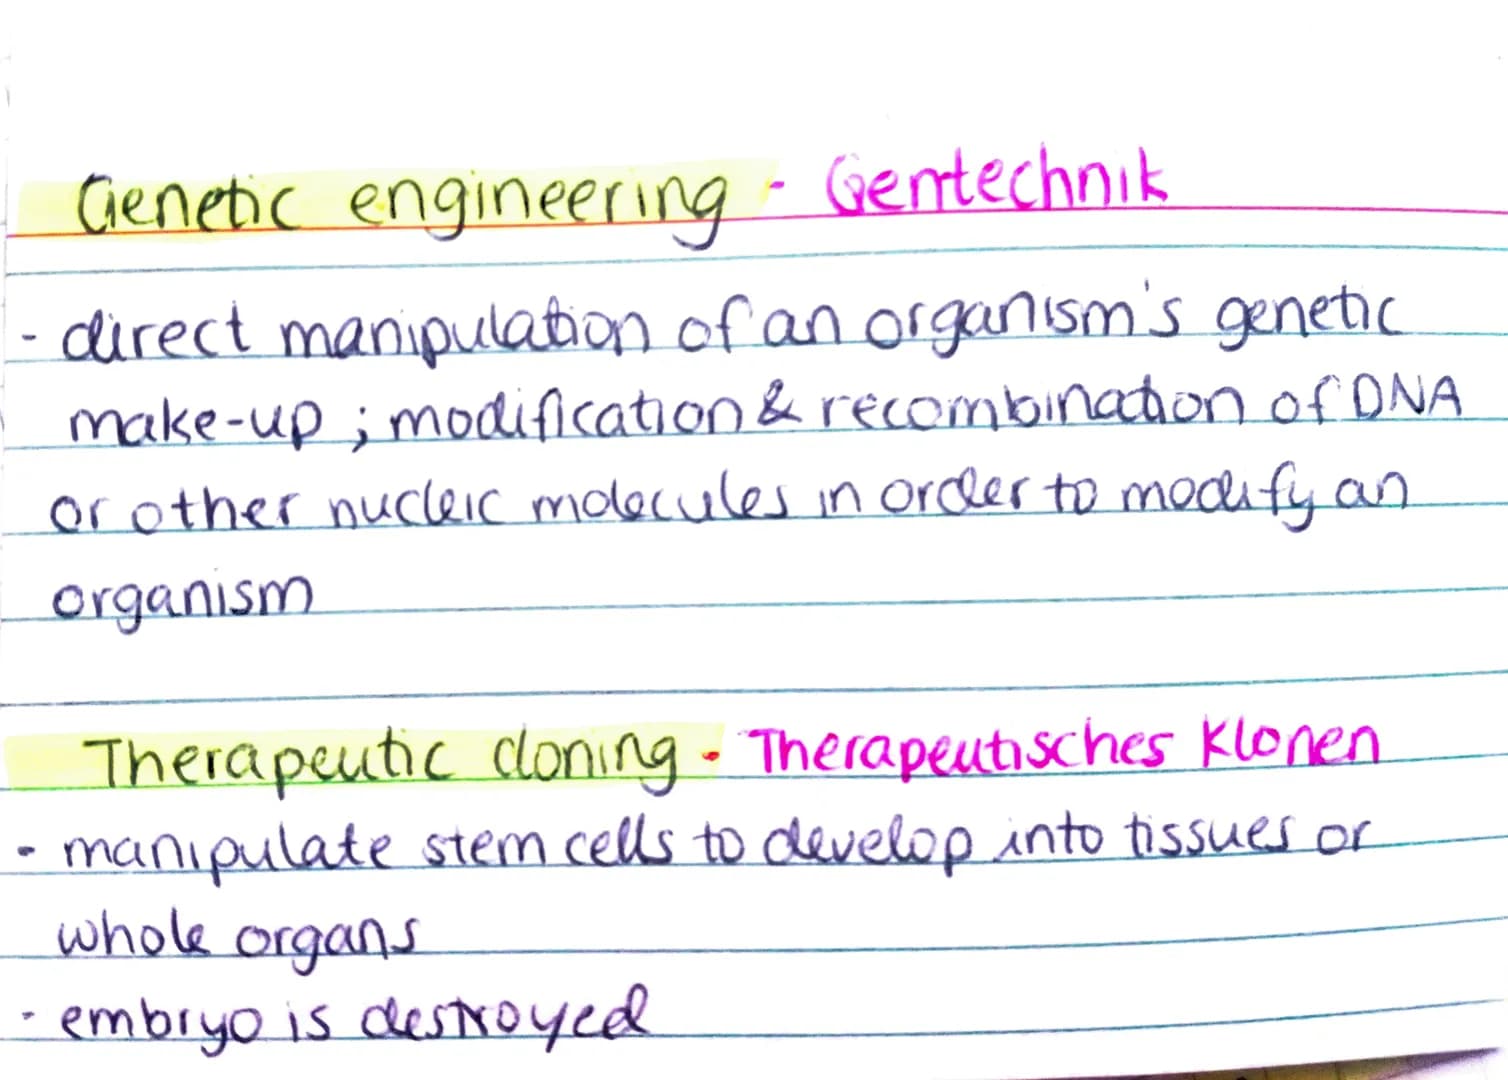 Genetic engineering - Gentechnik
- direct manipulation of an organism's genetic
make-up ; modification & recombination of DNA
or other nucleic molecules in order to modify an
organism
Therapeutic cloning - Therapeutisches Klonen
- manipulate stem cells to develop into tissues or
whole organs
- embryo is destroyed